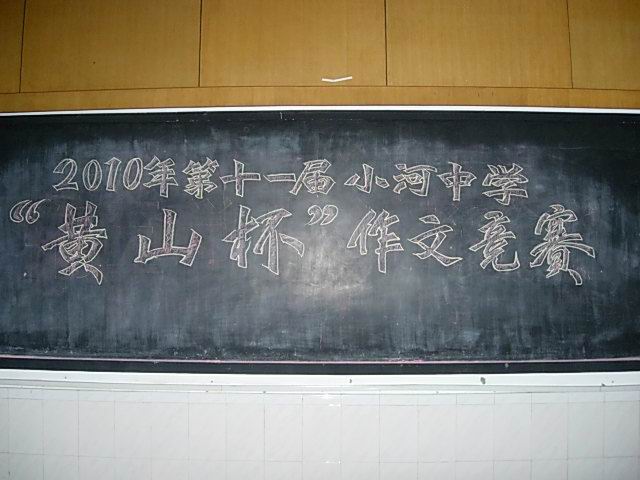 2010年第十一届小河中学
“黄山杯”作文竞赛